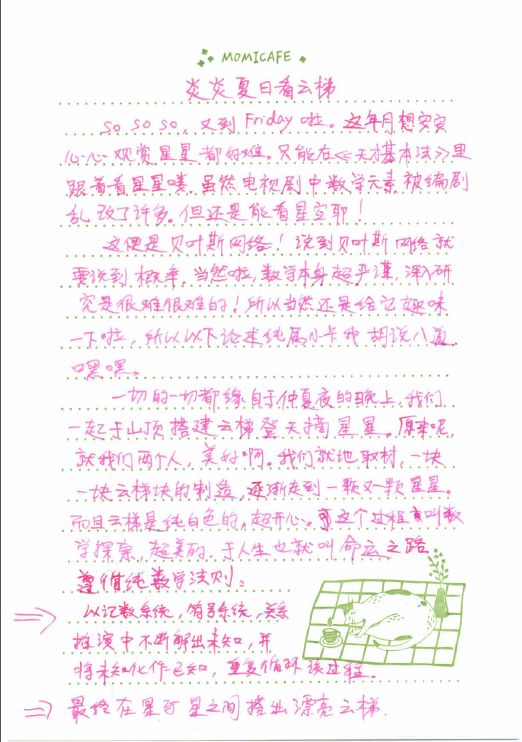 MOMICAFE
炎炎夏日看云梯
so so so，又到 Friday 啦。这年月想安安
心心观赏星星都好难。只能在《天才基本法》里
跟着看星星喽。虽然电视剧中数学元素被编剧
乱改了许多。但还是能看星空耶！
这便是贝叶斯网络！说到贝叶斯网络就
要说到概率。当然啦，数学本身超严谨，深入研
究是很难很难的！所以当然还是给它趣味
一下啦，所以以下论述纯属小卡我胡说八道
嘿嘿。
一切的一切都缘自于仲夏夜的晚上，我们
一起于山顶搭建云梯登天摘星星。原来呢，
就我们两个人，美好啊。我们就地取材，一块
一块云梯块的制造，逐渐走到一颗又一颗星星。
而且云梯是纯白色的，超开心。这个过程叫数
学探索，超美的，于人生也就叫命运之路
遵循纯数学法则：
以记数系统，符号系统，关系
推演中不断解出未知，并
将未知化作已知，重复循环该过程。
最终在星与星之间搭出漂亮云梯.